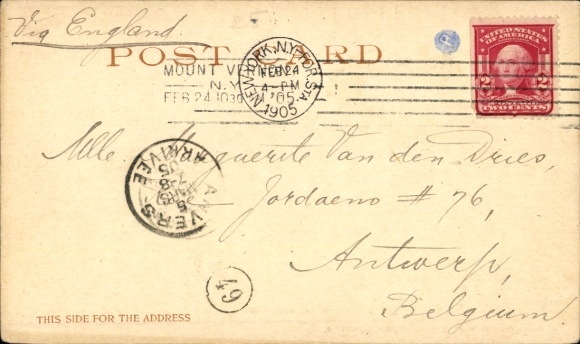 Via England.
POST CARD
UNITED STATES
OF AMERICA
2 2
TWO CENTS
MOUNT VERNON
N.Y.
FEB 24 1030
NEW YORK, N.Y. FOR. STA
FEB 24
4-PM
'05
1905
Mlle. Marguerite Van den Dries,
Jordaens # 76,
Antwerp,
Belgium
ANVERS
5
MARS
7-8
05
ARRIVÉE
49
THIS SIDE FOR THE ADDRESS